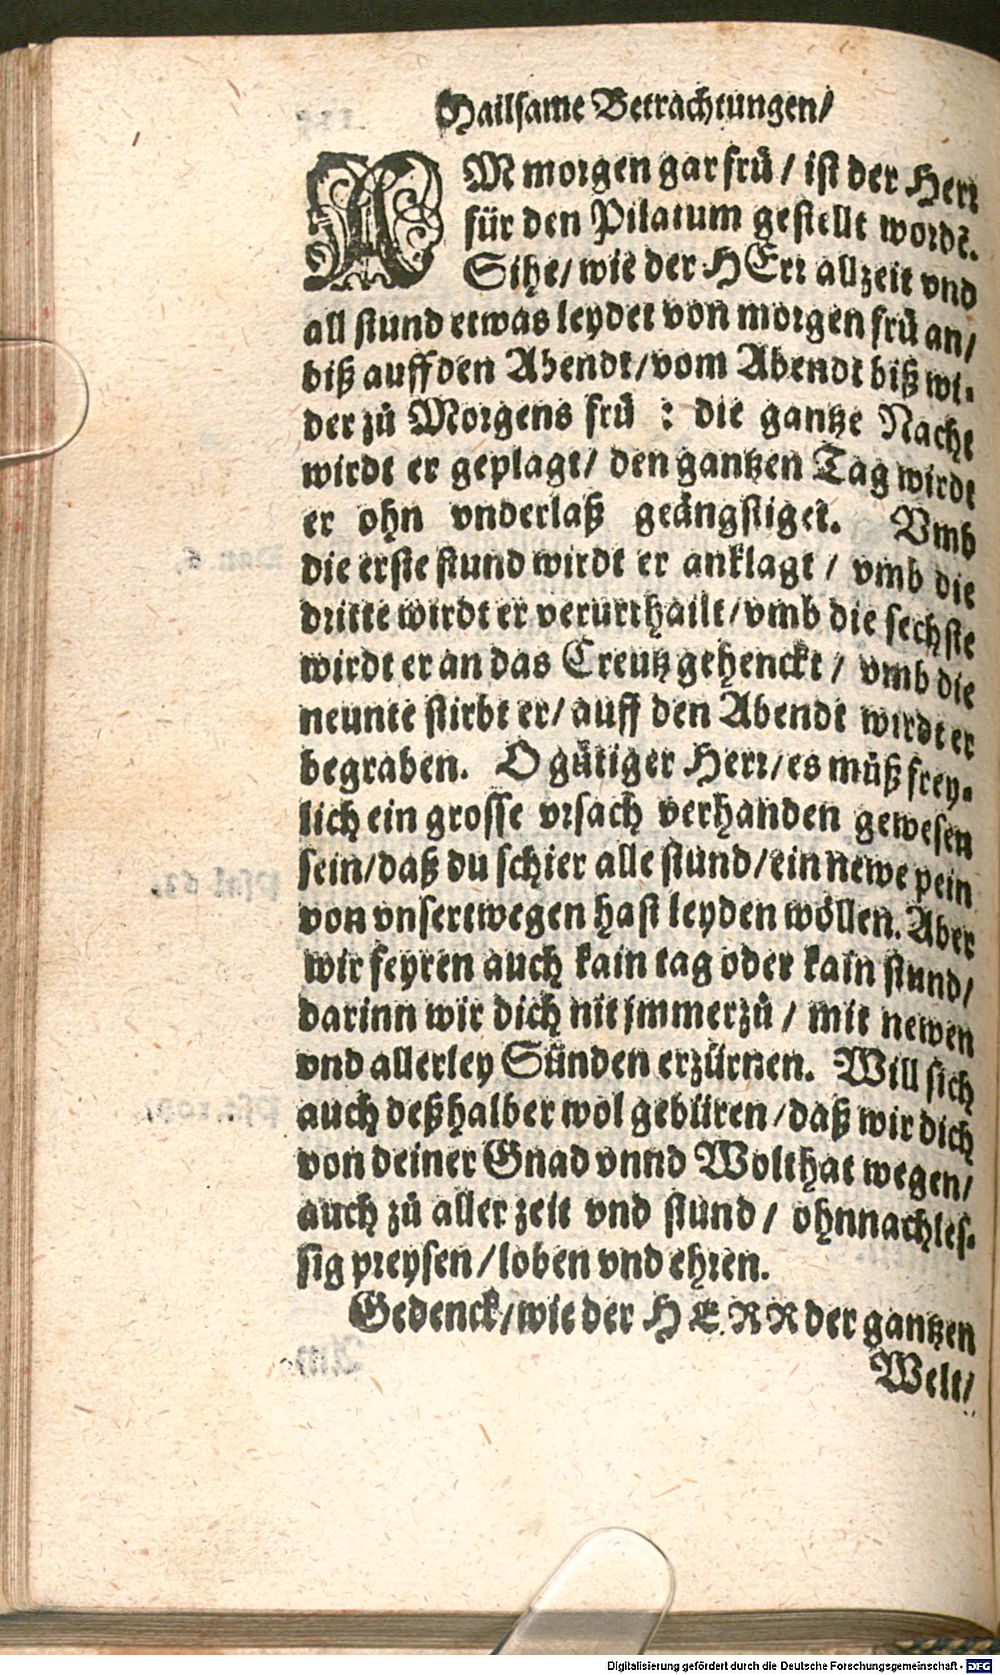 Hailsame Betrachtungen/
AM morgen gar frü / ist der Herr
für den Pilatum gestellt wordẽ.
Sihe/ wie der HErr allzeit vnd
all stund etwas leydet von morgen frü an/
biß auff den Abendt/vom Abendt biß wi-
der zů Morgens frü : die gantze Nacht
wirdt er geplagt/ den gantzen Tag wirdt
er ohn vnderlaß geängstiget. Vmb
die erste stund wirdt er anklagt / vmb die
dritte wirdt er verurthailt/vmb die sechste
wirdt er an das Creutz gehenckt / vmb die
neunte stirbt er/ auff den Abendt wirdt er
begraben. O gütiger Herr/es müß frey-
lich ein grosse vrsach verhanden gewesen
sein/daß du schier alle stund/ein newe pein
von vnsertwegen hast leyden wöllen. Aber
wir feyren auch kain tag oder kain stund/
darinn wir dich nit jmmerzů / mit newen
vnd allerley Sünden erzürnen. Will sich
auch deßhalber wol gebüren/daß wir dich
von deiner Gnad vnnd Wolthat wegen/
auch zů aller zeit vnd stund / ohnnachles-
sig preysen/loben vnd ehren.
Gedenck/wie der HERR der gantzen
Welt/
Digitalisierung gefördert durch die Deutsche Forschungsgemeinschaft - DFG